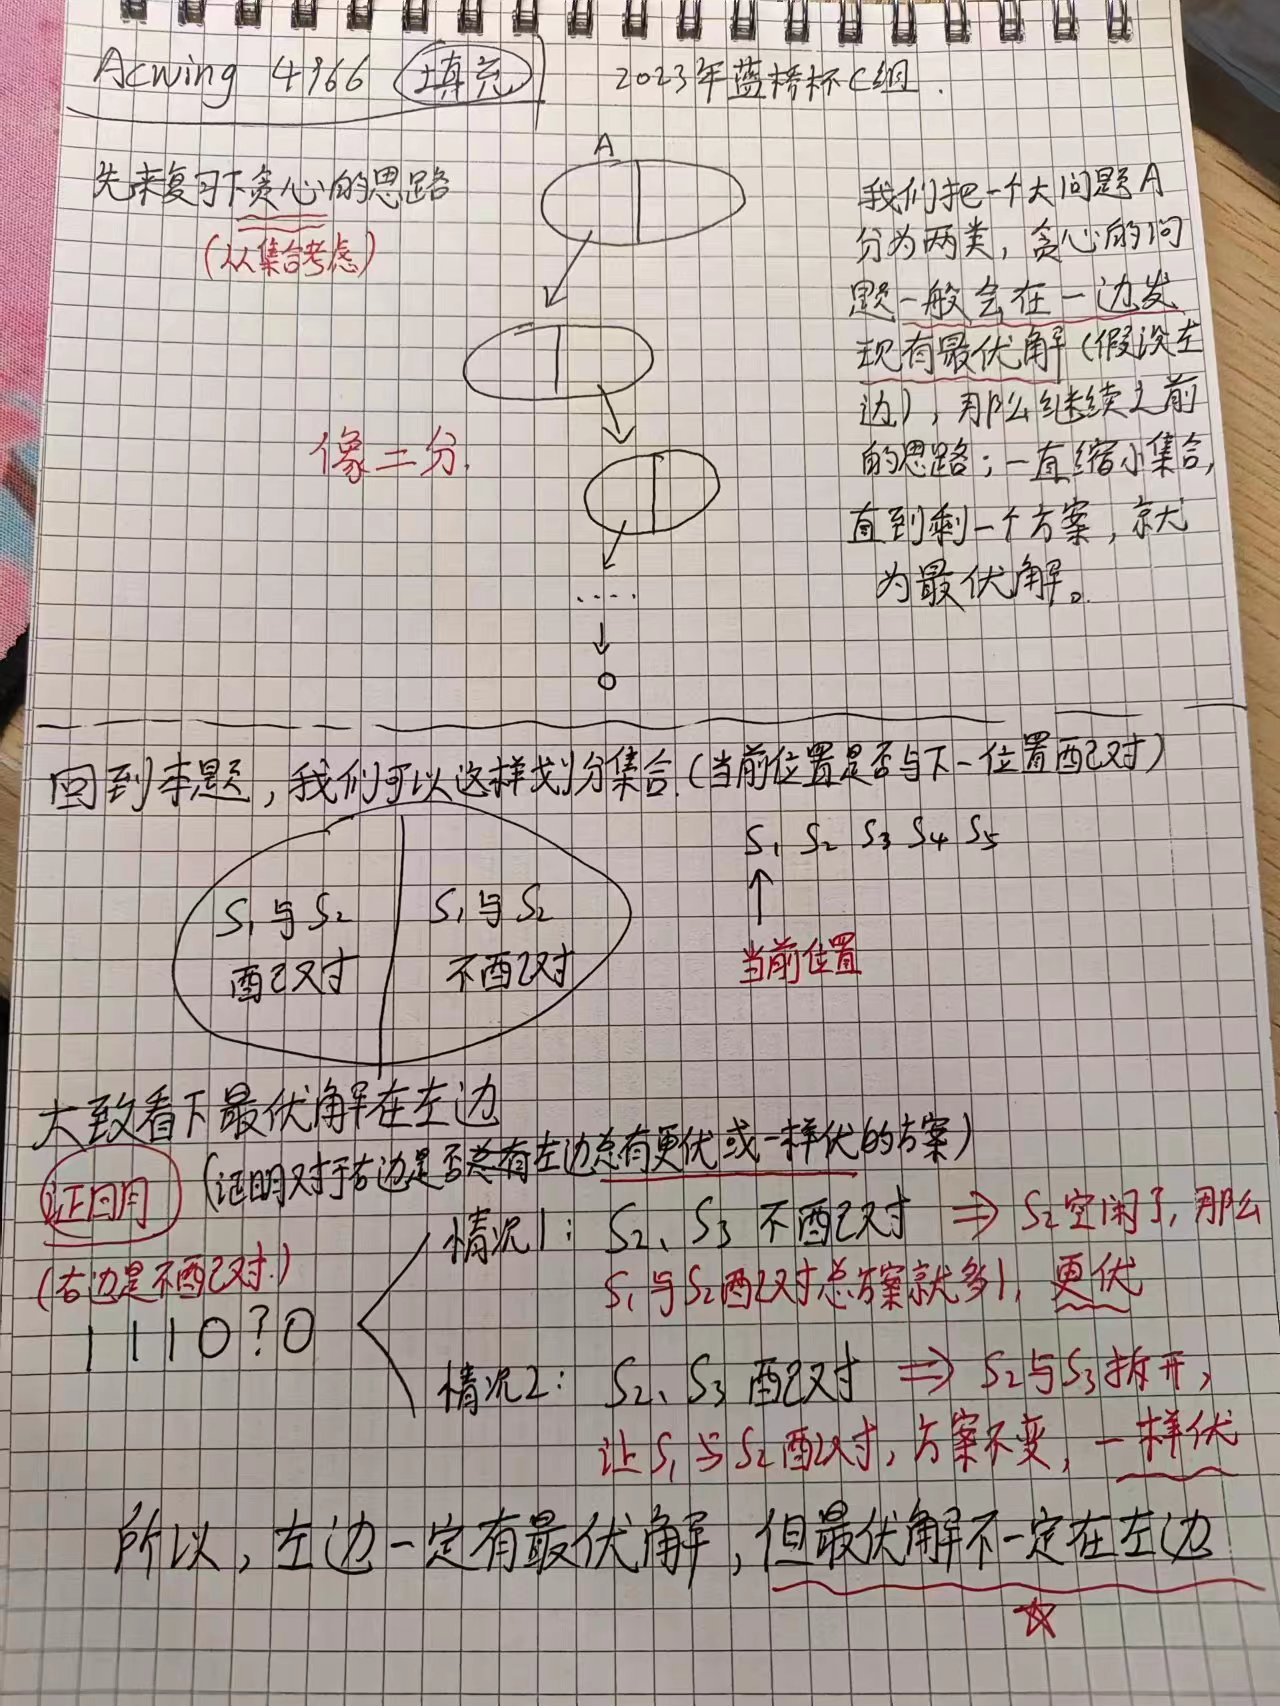 Acwing 4966 填充
2023年蓝桥杯C组.
先来复习下贪心的思路
(从集合考虑)
A
我们把一个大问题A
分为两类，贪心的问
题一般会在一边发
现有最优解(假设左
边)，那么继续之前
的思路；一直缩小集合，
直到剩一个方案，就
为最优解。
像二分.
....
回到本题，我们可以这样划分集合.(当前位置是否与下一位置配对)
S1 S2 S3 S4 S5
当前位置
S1与S2
配对
S1与S2
不配对
大致看下最优解在左边
证明
(证明对于右边是否总有左边总有更优或一样优的方案)
(右边是不配对.)
1110?0
情况1: S2、S3 不配对 ⇒ S2空闲了，那么
S1与S2配对总方案就多1，更优
情况2: S2、S3 配对 ⇒ S2与S3拆开，
让S1与S2配对，方案不变，一样优
所以，左边一定有最优解，但最优解不一定在左边